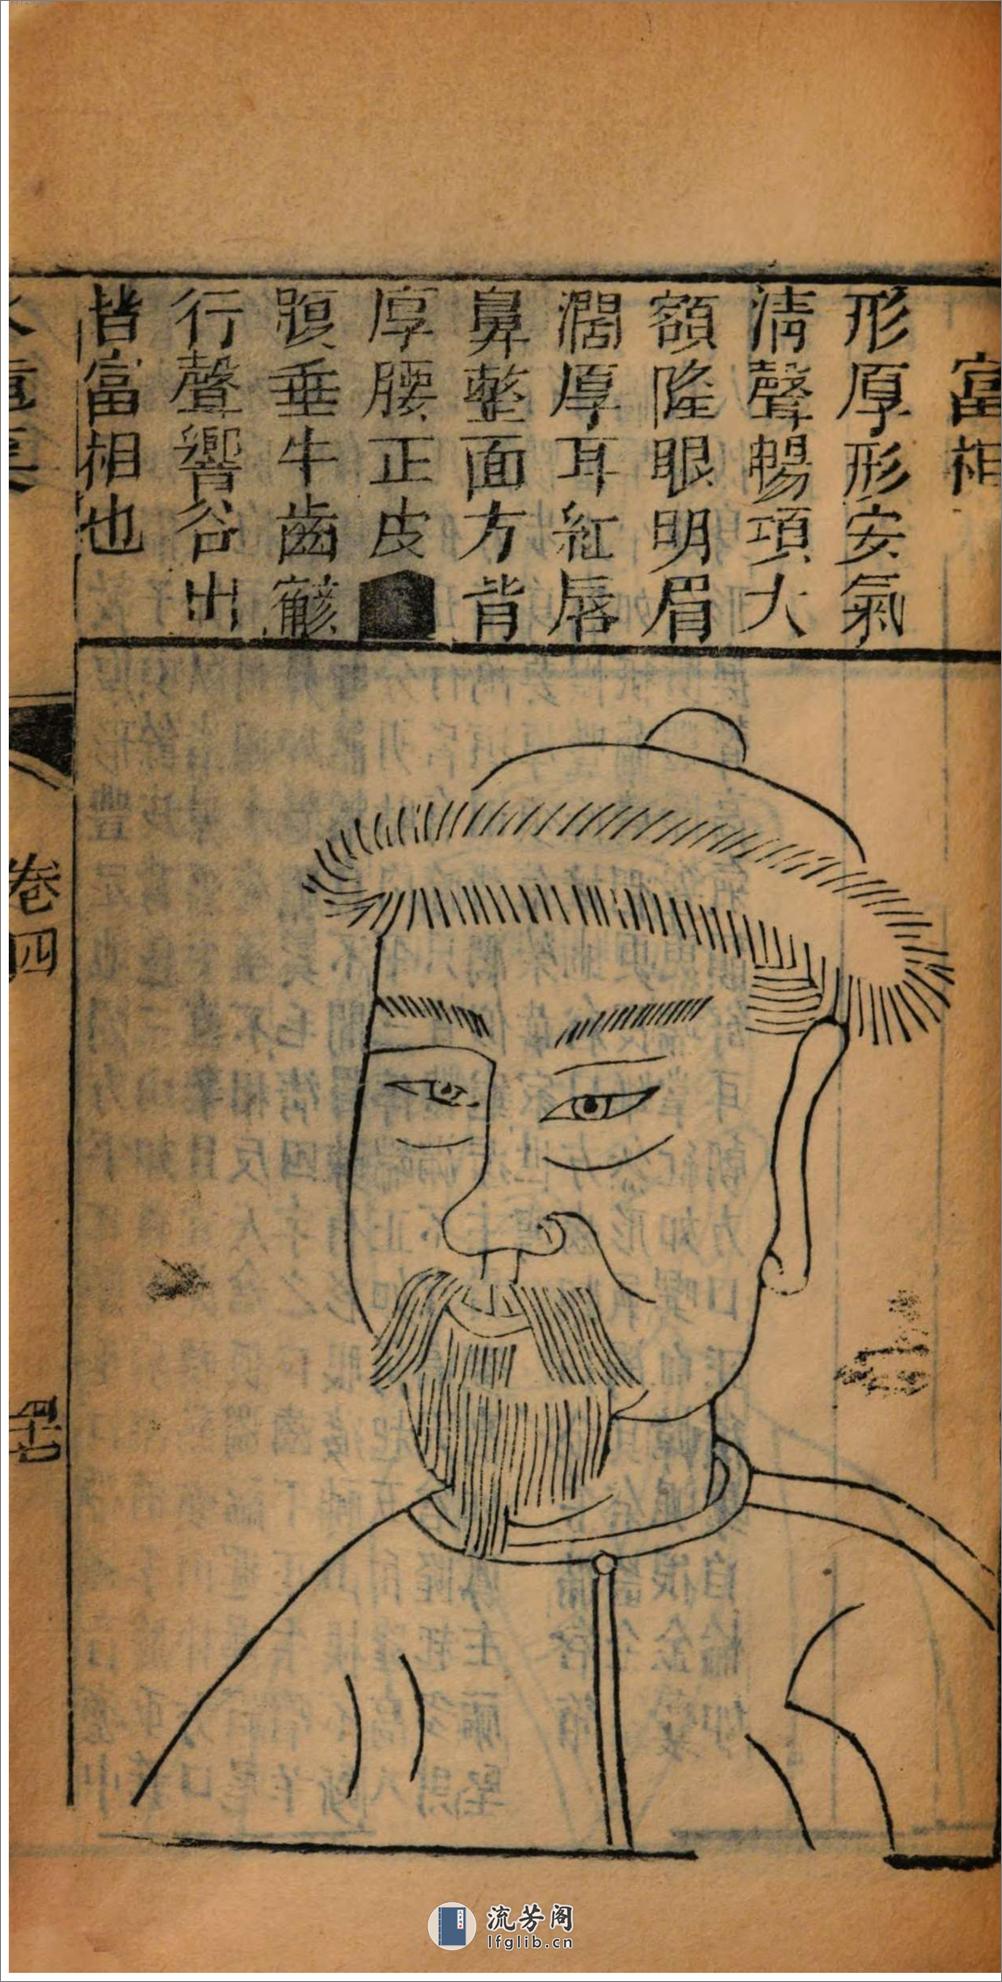 富相
形厚形安氣
清聲暢項大
額隆眼明眉
濶厚耳紅唇
鼻整面方背
厚腰正皮
垂牛齒
行聲響谷出
皆富相也
卷四
流芳阁
lfglib.cn